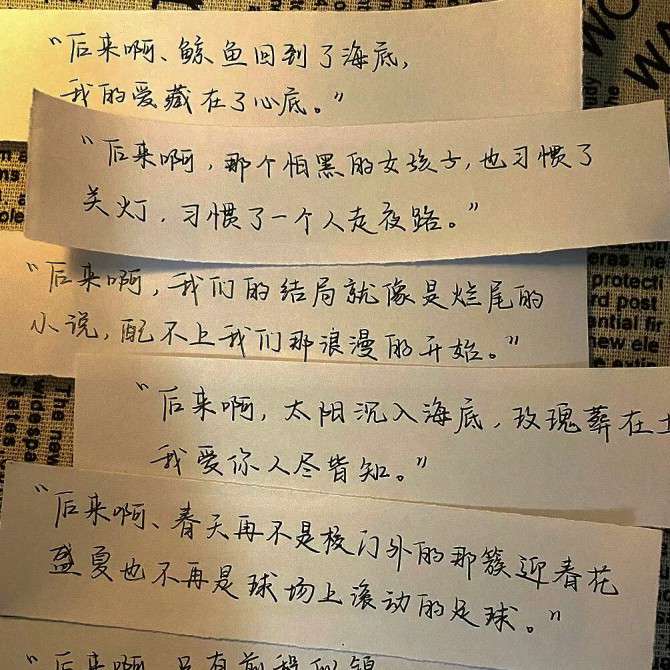 "后来啊、鲸鱼回到了海底,
我的爱藏在了心底。"
"后来啊,那个怕黑的女孩子,也习惯了
关灯,习惯了一个人走夜路。"
"后来啊,我们的结局就像是烂尾的
小说,配不上我们那浪漫的开始。"
"后来啊,太阳沉入海底,玫瑰葬在土
我爱你人尽皆知。"
"后来啊、春天再不是校门外的那簇迎春花
盛夏也不再是球场上滚动的足球。"
"后来啊,只有前程似锦
WO
WA
study
the
protecti
rd post
ential fir
new ele
The new
widespa
States